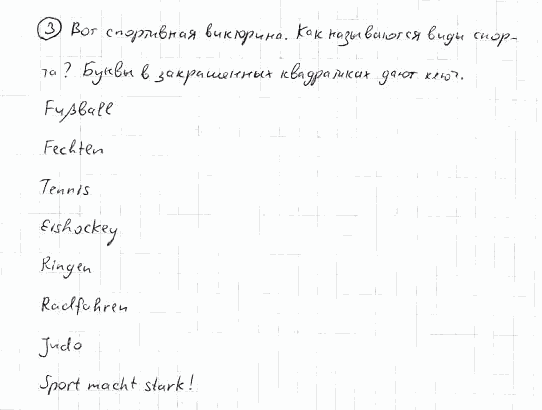 ③ Вот спортивная викторина. Как называются виды спор-
та? Буквы в закрашенных квадратиках дают ключ.
Fußball
Fechten
Tennis
Eishockey
Ringen
Radfahren
Judo
Sport macht stark!